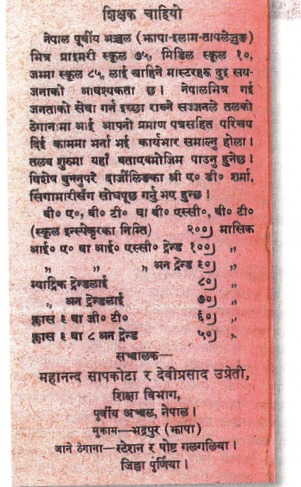 शिक्षक चाहियो
नेपाल पूर्वीय अञ्चल (झापा-इलाम-ताप्लेजुङ)
भित्र प्राइमरी स्कूल ७५, मिडिल स्कूल १०,
जम्मा स्कूल ८५, लाई चाहिने मास्टरहरू दुइ सय-
जनाको आवश्यकता छ। नेपालभित्र गई
जनताको सेवा गर्न इच्छा राख्ने सज्जनले तलको
ठेगानामा आई आफ्नो प्रमाण पत्रसहित परिचय
दिई काममा भर्ना भई कार्यभार समाल्नु होला।
तलब शुरूमा यहाँ बताएबमोजिम पाउनु हुनेछ।
विशेष बुझ्नुपरे दार्जीलिङका श्री ए० डी० शर्मा,
सिंगामारीसँग सोधपूछ गर्नु भए हुन्छ।
बी० ए०, बी० टी० वा बी० एस्सी०, बी० टी०
(स्कूल इन्स्पेक्टरका निम्ति) २००) मासिक
आई० ए० वा आई० एस्सी० ट्रेन्ड १००) „
„ „ „ अन ट्रेन्ड ९०) „
म्याट्रिक ट्रेन्डलाई ८०) „
„ अन ट्रेन्डलाई ७०) „
क्लास ९ वा जी० टी० ६०) „
क्लास ६ वा ८ अन ट्रेन्ड ५०) „
सञ्चालक—
महानन्द सापकोटा र देवीप्रसाद उप्रेती,
शिक्षा विभाग,
पूर्वीय अञ्चल, नेपाल।
मुकाम—भद्रपुर (झापा)
जाने ठेगाना—स्टेशन र पोष्ट गलगलिया।
जिल्ला पुर्णिया।